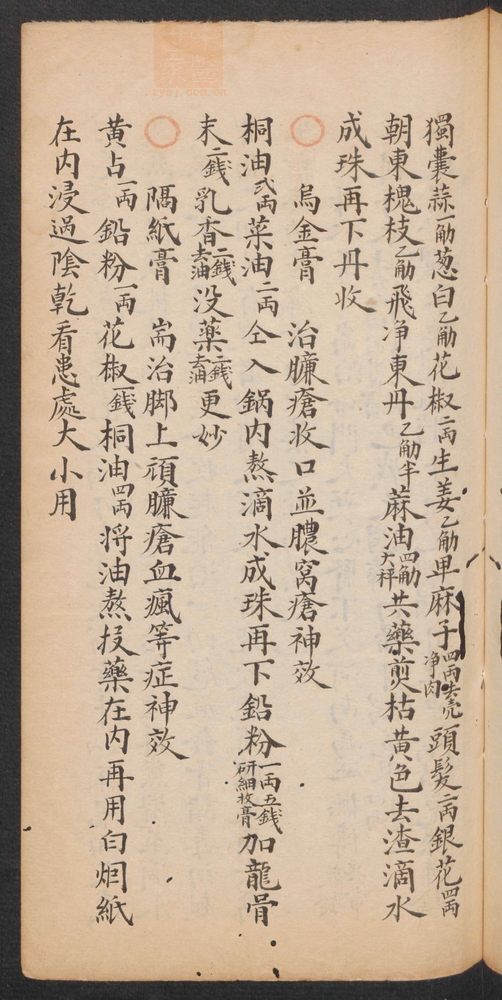 獨囊蒜一觔葱白乙觔花椒二両生姜乙觔卑麻子四両去壳净肉頭髮二両銀花四両
朝東槐枝乙觔飛净東丹乙觔半蔴油四觔大秤共藥煎枯黄色去渣滴水
成珠再下丹收
○　烏金膏　治臁瘡收口並膿窝瘡神效
桐油弍両菜油二両仝入鍋内熬滴水成珠再下鉛粉一両五錢研細收膏加龍骨
末二錢乳香二錢去油没藥二錢去油更妙
○　隔紙膏　耑治脚上頑臁瘡血瘋等症神效
黄占一両鉛粉一両花椒一錢桐油四両将油熬投藥在内再用白綿紙
在内浸過陰乾看患處大小用